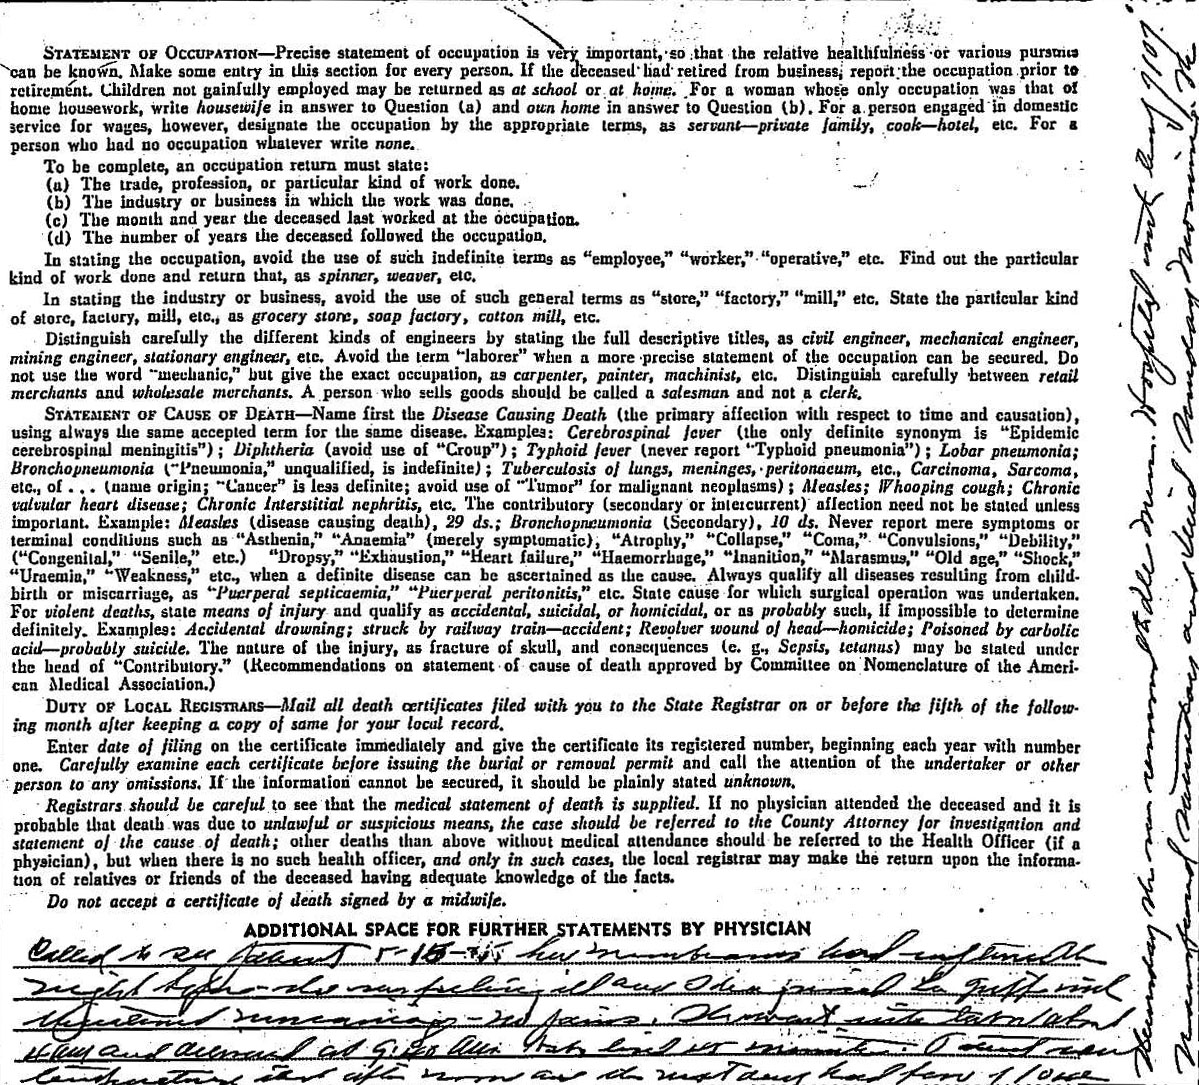 STATEMENT OF OCCUPATION—Precise statement of occupation is very important, so that the relative healthfulness or various pursuits
can be known. Make some entry in this section for every person. If the deceased had retired from business, report the occupation prior to
retirement. Children not gainfully employed may be returned as at school or at home. For a woman whose only occupation was that of
home housework, write housewife in answer to Question (a) and own home in answer to Question (b). For a person engaged in domestic
service for wages, however, designate the occupation by the appropriate terms, as servant—private family, cook—hotel, etc. For a
person who had no occupation whatever write none.
To be complete, an occupation return must state:
(a) The trade, profession, or particular kind of work done.
(b) The industry or business in which the work was done.
(c) The month and year the deceased last worked at the occupation.
(d) The number of years the deceased followed the occupation.
In stating the occupation, avoid the use of such indefinite terms as "employee," "worker," "operative," etc. Find out the particular
kind of work done and return that, as spinner, weaver, etc.
In stating the industry or business, avoid the use of such general terms as "store," "factory," "mill," etc. State the particular kind
of store, factory, mill, etc., as grocery store, soap factory, cotton mill, etc.
Distinguish carefully the different kinds of engineers by stating the full descriptive titles, as civil engineer, mechanical engineer,
mining engineer, stationary engineer, etc. Avoid the term "laborer" when a more precise statement of the occupation can be secured. Do
not use the word "mechanic," but give the exact occupation, as carpenter, painter, machinist, etc. Distinguish carefully between retail
merchants and wholesale merchants. A person who sells goods should be called a salesman and not a clerk.
STATEMENT OF CAUSE OF DEATH—Name first the Disease Causing Death (the primary affection with respect to time and causation),
using always the same accepted term for the same disease. Examples: Cerebrospinal fever (the only definite synonym is "Epidemic
cerebrospinal meningitis") ; Diphtheria (avoid use of "Croup") ; Typhoid fever (never report "Typhoid pneumonia") ; Lobar pneumonia;
Bronchopneumonia ("Pneumonia," unqualified, is indefinite) ; Tuberculosis of lungs, meninges, peritonaeum, etc., Carcinoma, Sarcoma,
etc., of . . . (name origin; "Cancer" is less definite; avoid use of "Tumor" for malignant neoplasms) ; Measles; Whooping cough; Chronic
valvular heart disease; Chronic Interstitial nephritis, etc. The contributory (secondary or intercurrent) affection need not be stated unless
important. Example: Measles (disease causing death), 29 ds.; Bronchopneumonia (Secondary), 10 ds. Never report mere symptoms or
terminal conditions such as "Asthenia," "Anaemia" (merely symptomatic), "Atrophy," "Collapse," "Coma," "Convulsions," "Debility,"
("Congenital," "Senile," etc.) "Dropsy," "Exhaustion," "Heart failure," "Haemorrhage," "Inanition," "Marasmus," "Old age," "Shock,"
"Uraemia," "Weakness," etc., when a definite disease can be ascertained as the cause. Always qualify all diseases resulting from child-
birth or miscarriage, as "Puerperal septicaemia," "Puerperal peritonitis," etc. State cause for which surgical operation was undertaken.
For violent deaths, state means of injury and qualify as accidental, suicidal, or homicidal, or as probably such, if impossible to determine
definitely. Examples: Accidental drowning; struck by railway train—accident; Revolver wound of head—homicide; Poisoned by carbolic
acid—probably suicide. The nature of the injury, as fracture of skull, and consequences (e. g., Sepsis, tetanus) may be stated under
the head of "Contributory." (Recommendations on statement of cause of death approved by Committee on Nomenclature of the Ameri-
can Medical Association.)
DUTY OF LOCAL REGISTRARS—Mail all death certificates filed with you to the State Registrar on or before the fifth of the follow-
ing month after keeping a copy of same for your local record.
Enter date of filing on the certificate immediately and give the certificate its registered number, beginning each year with number
one. Carefully examine each certificate before issuing the burial or removal permit and call the attention of the undertaker or other
person to any omissions. If the information cannot be secured, it should be plainly stated unknown.
Registrars should be careful to see that the medical statement of death is supplied. If no physician attended the deceased and it is
probable that death was due to unlawful or suspicious means, the case should be referred to the County Attorney for investigation and
statement of the cause of death; other deaths than above without medical attendance should be referred to the Health Officer (if a
physician), but when there is no such health officer, and only in such cases, the local registrar may make the return upon the informa-
tion of relatives or friends of the deceased having adequate knowledge of the facts.
Do not accept a certificate of death signed by a midwife.
ADDITIONAL SPACE FOR FURTHER STATEMENTS BY PHYSICIAN
Called to see patient 5-15- her membranes had ruptured the
night before she was feeling ill and I diagnosed La Grippe and
no pains. She went into labor about
and delivered at Baby lived minutes. Patient
temperature that after noon and the next day had
Thursday she was removed to Hospital
and died Sunday morning